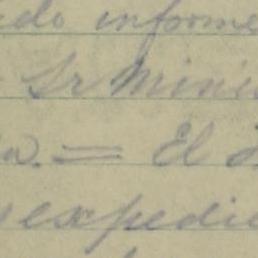 ido informe
Sr Minis
a. = El d
expedie